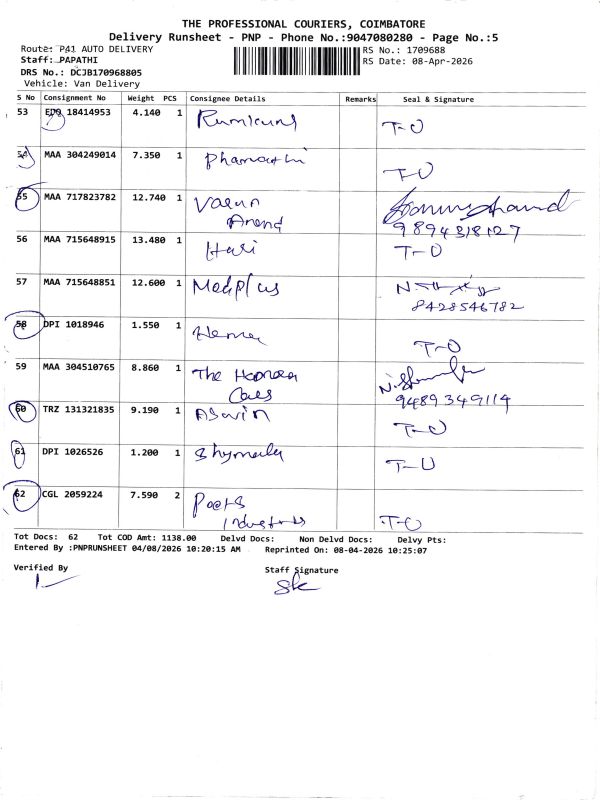 THE PROFESSIONAL COURIERS, COIMBATORE
Delivery Runsheet - PNP - Phone No.:9047080280 - Page No.:5
Route: P41 AUTO DELIVERY RS No.: 1709688
Staff: PAPATHI RS Date: 08-Apr-2026
DRS No.: DCJB170968805
Vehicle: Van Delivery
S No Consignment No Weight PCS Consignee Details Remarks Seal & Signature
53 EDQ 18414953 4.140 1 T-O
54 MAA 304249014 7.350 1 T-O
55 MAA 717823782 12.740 1 Varun
Anand 9894318127
56 MAA 715648915 13.480 1 Hari T-O
57 MAA 715648851 12.600 1 Medplus
8428546782
58 DPI 1018946 1.550 1 Hema T-O
59 MAA 304510765 8.860 1 The
9489349114
60 TRZ 131321835 9.190 1 Aswin T-O
61 DPI 1026526 1.200 1 Shymala T-O
62 CGL 2059224 7.590 2
T-O
Tot Docs: 62 Tot COD Amt: 1138.00 Delvd Docs: Non Delvd Docs: Delvy Pts:
Entered By :PNPRUNSHEET 04/08/2026 10:20:15 AM Reprinted On: 08-04-2026 10:25:07
Verified By Staff Signature